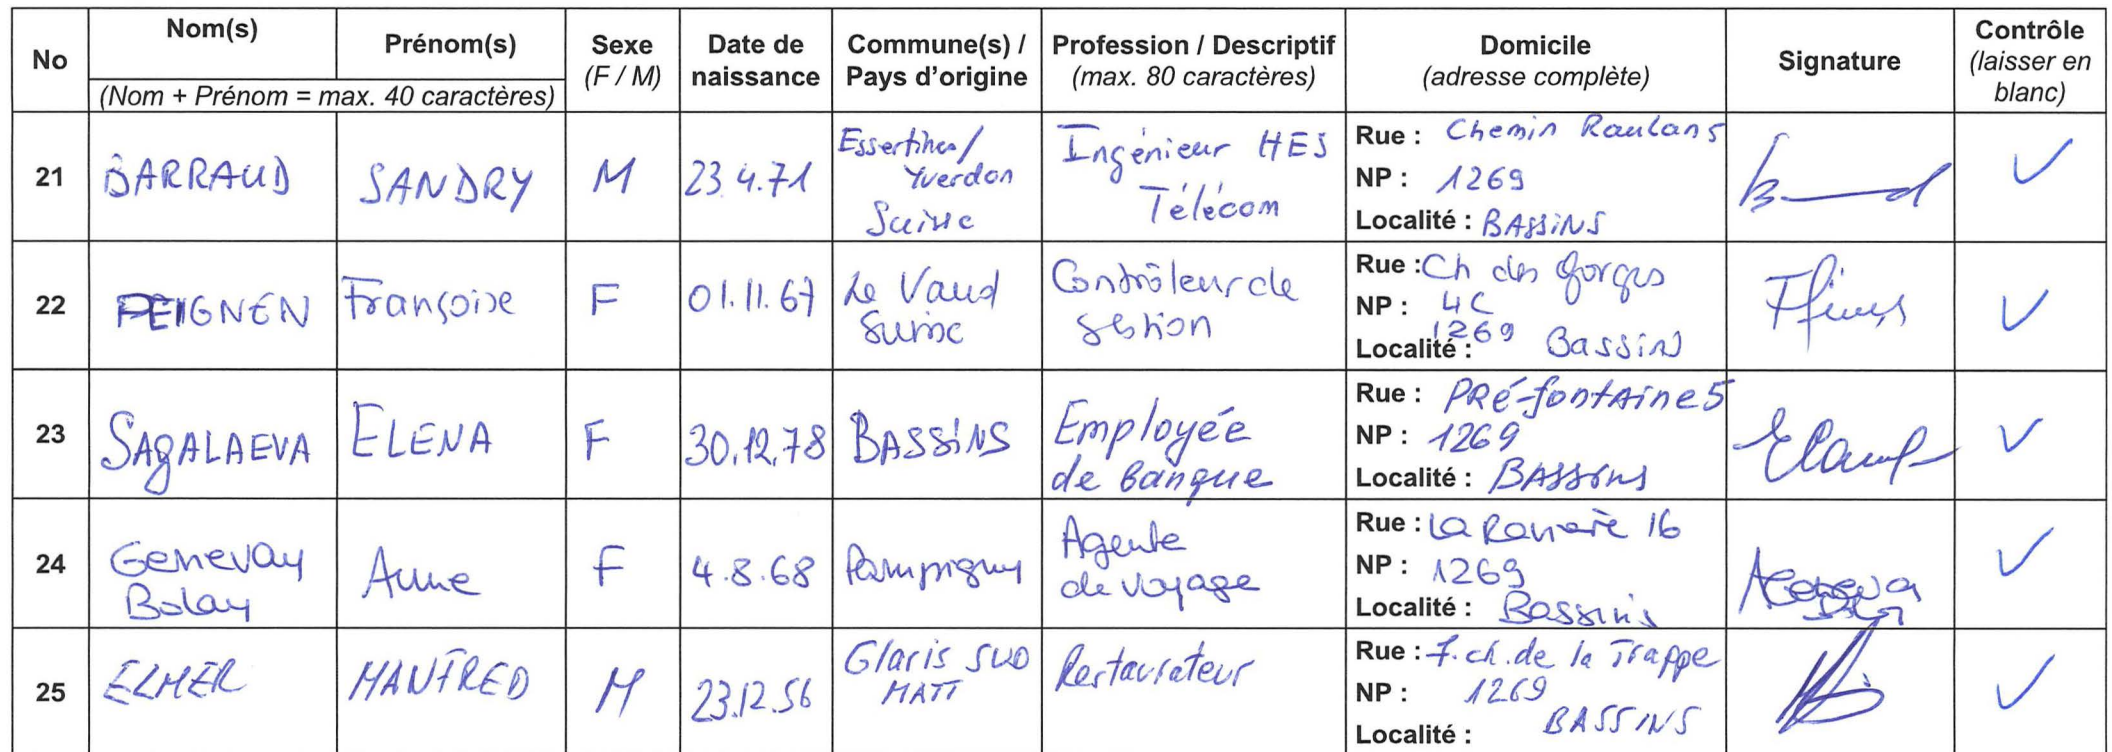 No Nom(s) Prénom(s) Sexe (F / M) Date de naissance Commune(s) / Pays d'origine Profession / Descriptif (max. 80 caractères) Domicile (adresse complète) Signature Contrôle (laisser en blanc)
(Nom + Prénom = max. 40 caractères)
21 BARRAUD SANDRY M 23 4.71 Essertines/ Yverdon Suisse Ingénieur HES Télécom
Rue : Chemin Raulans
NP : 1269
Localité : BASSiNS
22 PEIGNEN Françoise F 01.11.67 Le Vaud Suisse Contrôleur de gestion
Rue : Ch des gorges
NP : 4C
1269
Localité : Bassins
23 SAgALAEVA ELENA F 30.12.78 BASSiNS Employée de banque
Rue : PRé-fontAine 5
NP : 1269
Localité : BASSins
24 Genevay Bolay Anne F 4.8.68 Pampigny Agente de voyage
Rue : La 16
NP : 1269
Localité : Bassins
25 ELMER MANFRED M 23.12.56 Glaris SUD MATT Restaurateur
Rue : 7. ch. de la Trappe
NP : 1269
Localité : BASSINS